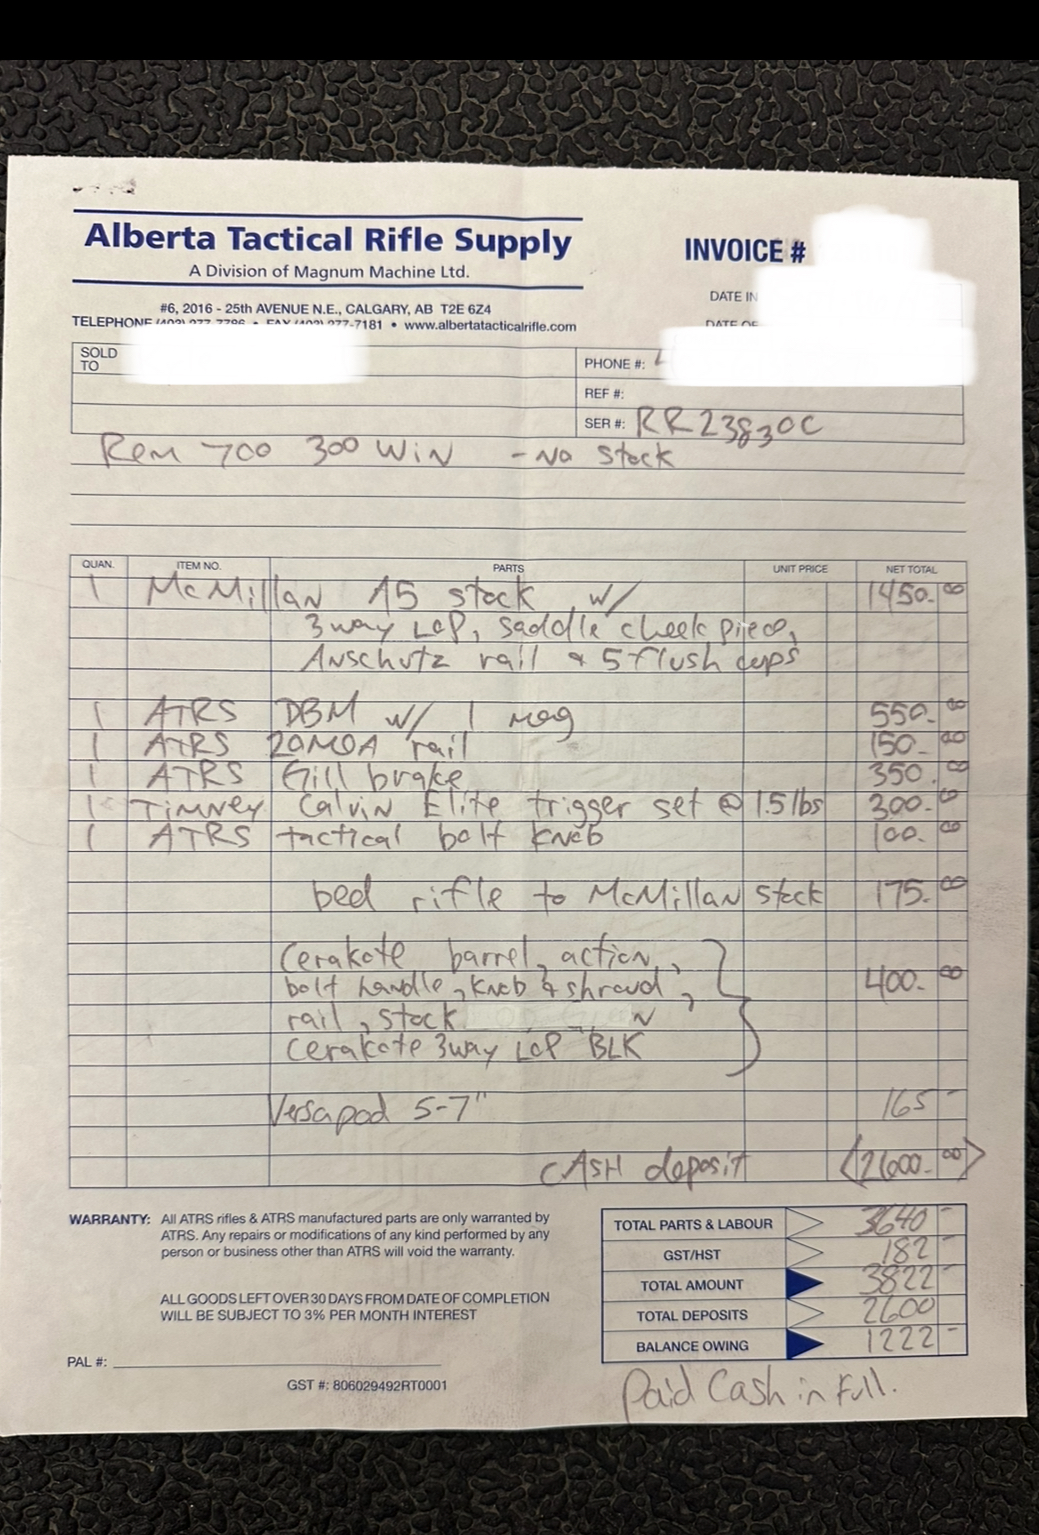 Alberta Tactical Rifle Supply
A Division of Magnum Machine Ltd.
INVOICE #
#6, 2016 - 25th AVENUE N.E., CALGARY, AB T2E 6Z4
DATE IN
TELEPHONE (403) 277-7786 • FAX (403) 277-7181 • www.albertatacticalrifle.com
SOLD TO
PHONE #:
REF #:
SER #: RR23830C
Rem 700 300 WIN - No Stock
QUAN. ITEM NO. PARTS UNIT PRICE NET TOTAL
1 McMillan A5 stock w/ 1450.00
3way LOP, saddle cheek piece,
Anschutz rail & 5 flush cups
1 ATRS DBM w/ 1 mag 550.00
1 ATRS 20MOA rail 150.00
1 ATRS Gill brake 350.00
1 Timney Calvin Elite trigger set @ 1.5 lbs 300.00
1 ATRS tactical bolt knob 100.00
bed rifle to McMillan stock 175.00
Cerakote barrel, action,
bolt handle, knob & shroud, 400.00
rail, stock
Cerakote 3way LOP BLK
Versapod 5-7" 165-
CASH deposit <2600.00>
WARRANTY: All ATRS rifles & ATRS manufactured parts are only warranted by
ATRS. Any repairs or modifications of any kind performed by any
person or business other than ATRS will void the warranty.
ALL GOODS LEFT OVER 30 DAYS FROM DATE OF COMPLETION
WILL BE SUBJECT TO 3% PER MONTH INTEREST
TOTAL PARTS & LABOUR 3640-
GST/HST 182-
TOTAL AMOUNT 3822-
TOTAL DEPOSITS 2600
BALANCE OWING 1222-
PAL #:
GST #: 806029492RT0001
Paid Cash in Full.